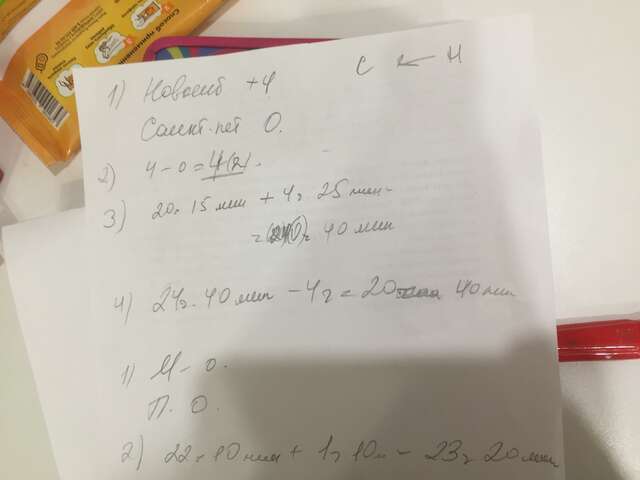 Способ применения
С ← Н
1) Новосиб +4
Санкт-пет 0.
2) 4 - 0 = 4 (2).
3) 20ч 15 мин + 4ч 25 мин =
= 40 мин
4) 24ч. 40 мин - 4ч = 20 40 мин
1) М - 0.
П. 0.
2) 22ч 10 мин + 1ч 10м - 23ч 20 мин